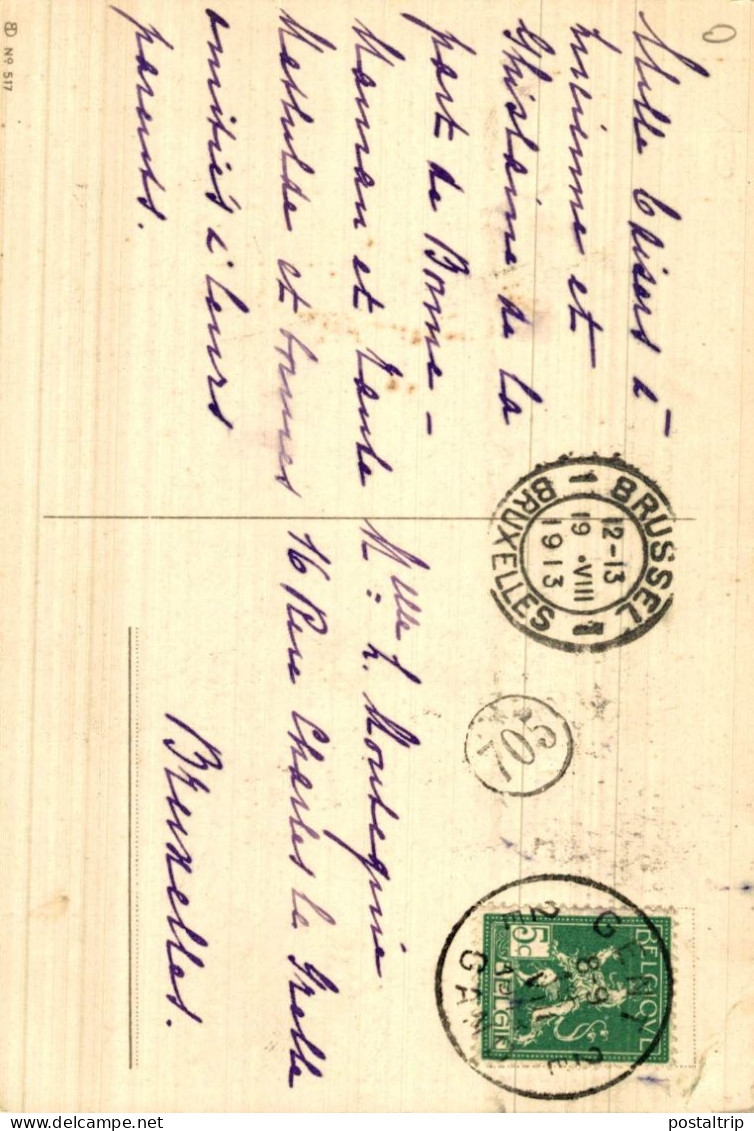 Mille baisers à
et
Ghislaine de la
part de Bonne-
Maman et tante
Mathilde et bonnes
amitiés à leurs
parents.
BRUSSEL
1 BRUXELLES 1
12-13
19 .VIII
1913
705
BELGIQUE
5c
BELGIË
GENT
8-9
VIII
GAND
Melle L. Montegnie
16 Rue Charles le Grelle
Bruxelles.
Nº 517
postaltrip